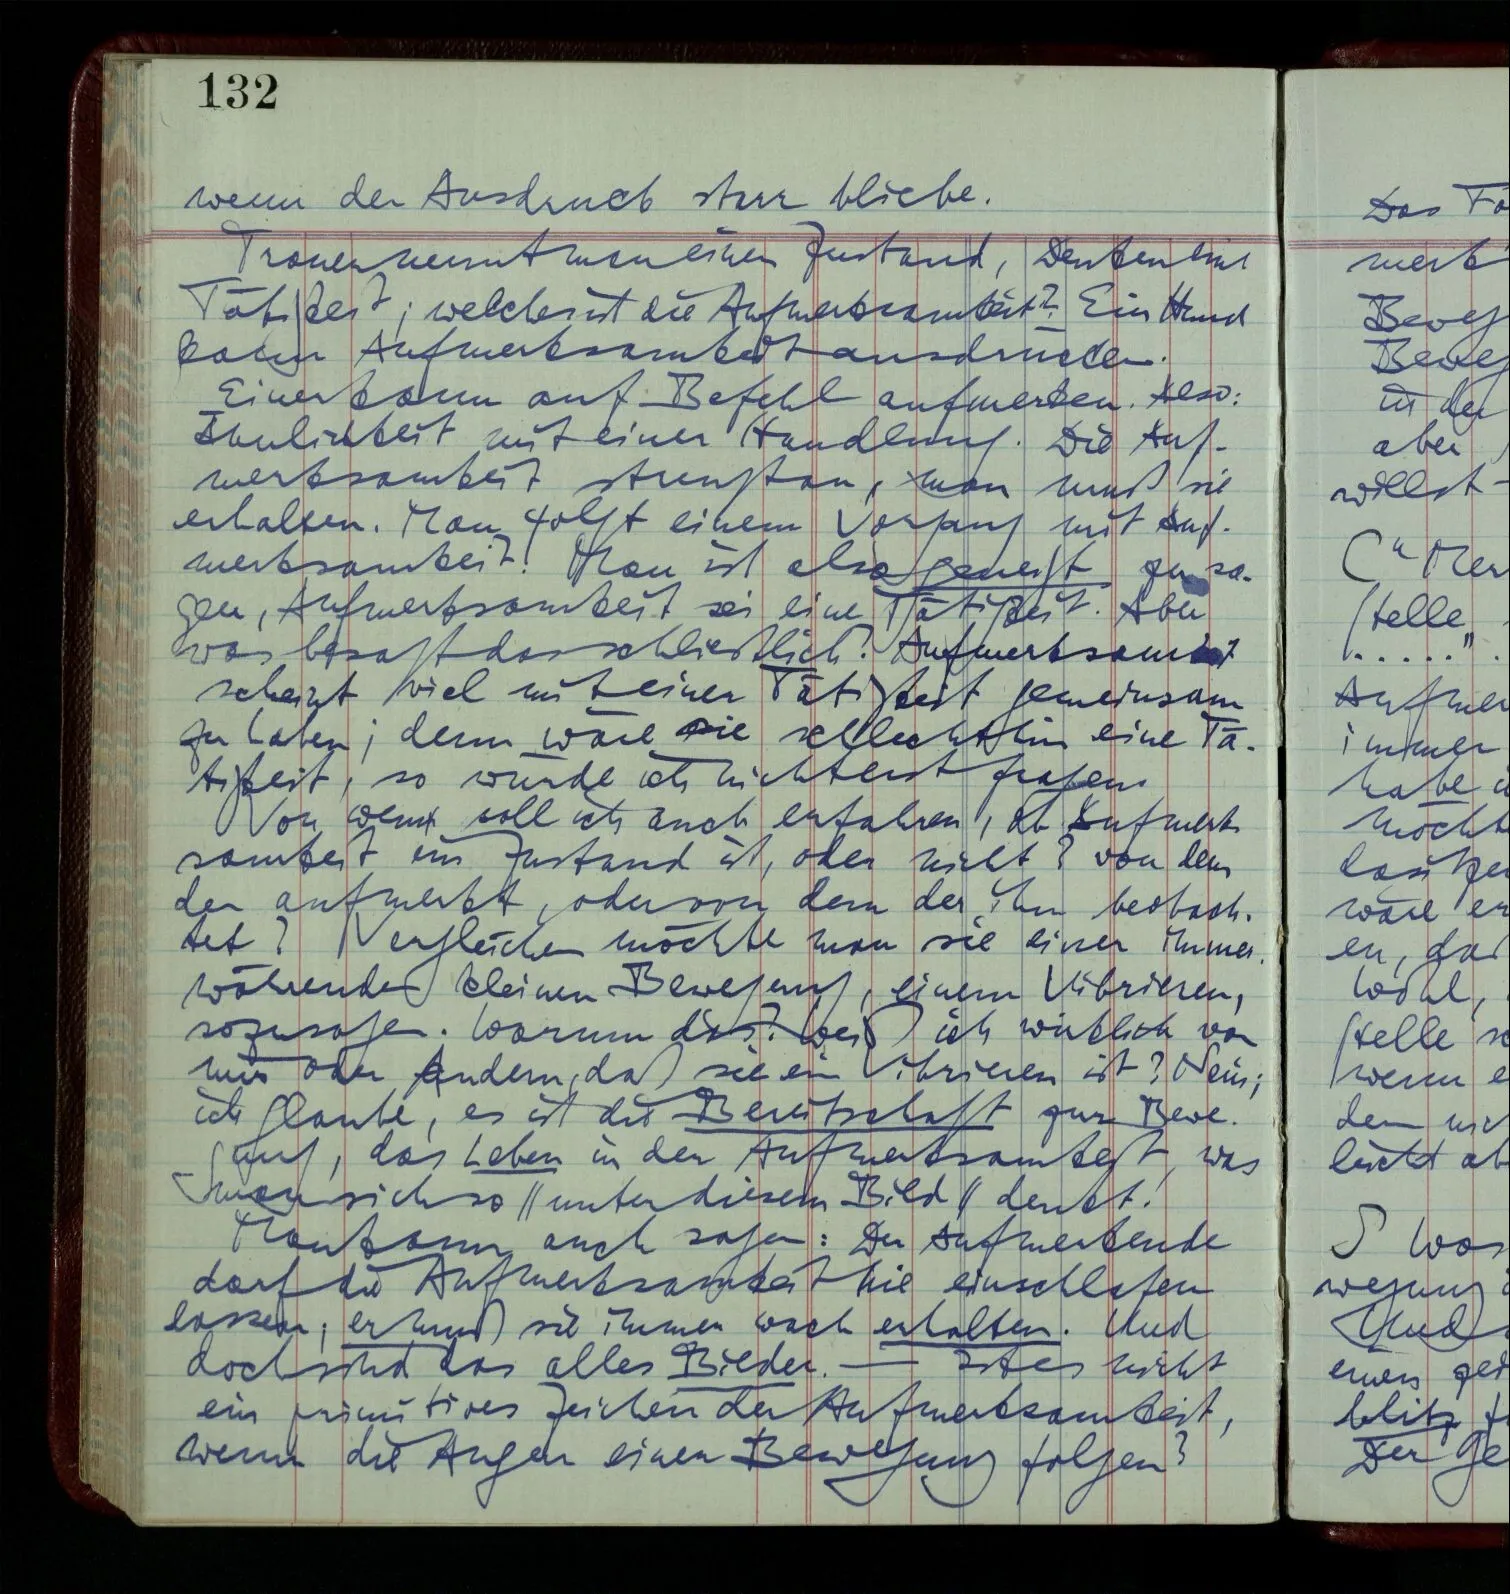 132
wenn der Ausdruck starr bliebe.
Trauer nennt man einen Zustand, Denken eine
Tätigkeit; welches ist die Aufmerksamkeit? Ein Hund
kann Aufmerksamkeit ausdrücken.
Einer kann auf Befehl aufmerken. Also:
Ähnlichkeit mit einer Handlung. Die Auf-
merksamkeit strengt an, man muß sie
erhalten. Man folgt einem Vorgang mit Auf-
merksamkeit! Man ist also geneigt zu sa-
gen, Aufmerksamkeit sei eine Tätigkeit. Aber
was besagt das schließlich? Aufmerksamkeit
scheint viel mit einer Tätigkeit gemeinsam
zu haben; denn wäre sie schlechthin eine Tä-
tigkeit, so würde ich nicht erst fragen.
Von wem soll ich auch erfahren, ob Aufmerk-
samkeit ein Zustand ist, oder nicht? von dem
der aufmerkt, oder von dem der ihn beobach-
tet? Vergleichen möchte man sie einer immer-
währenden kleinen Bewegung, einem Vibrieren,
sozusagen. Warum dies? Weiß ich wirklich von
mir oder Andern, daß sie ein Vibrieren ist? Nein;
ich glaube, es ist die Bereitschaft zur Bewe-
gung, das Leben in der Aufmerksamkeit, was
man sich so // unter diesem Bild // denkt.
Man kann auch sagen: Der Aufmerkende
darf die Aufmerksamkeit nie einschlafen
lassen; er muß sie immer wach erhalten. Und
doch sind das alles Bilder. — Ist es nicht
ein primitives Zeichen der Aufmerksamkeit,
wenn die Augen einer Bewegung folgen?
Das
merk
Beweg
Beweg
in der
aber
willst
stelle
....."
Aufmer
immer
habe
möcht
wäre er
en, das
Wohl,
stelle
wenn
dem
leicht ab
Was
wegung
Und
einen
blitz
Der Ge